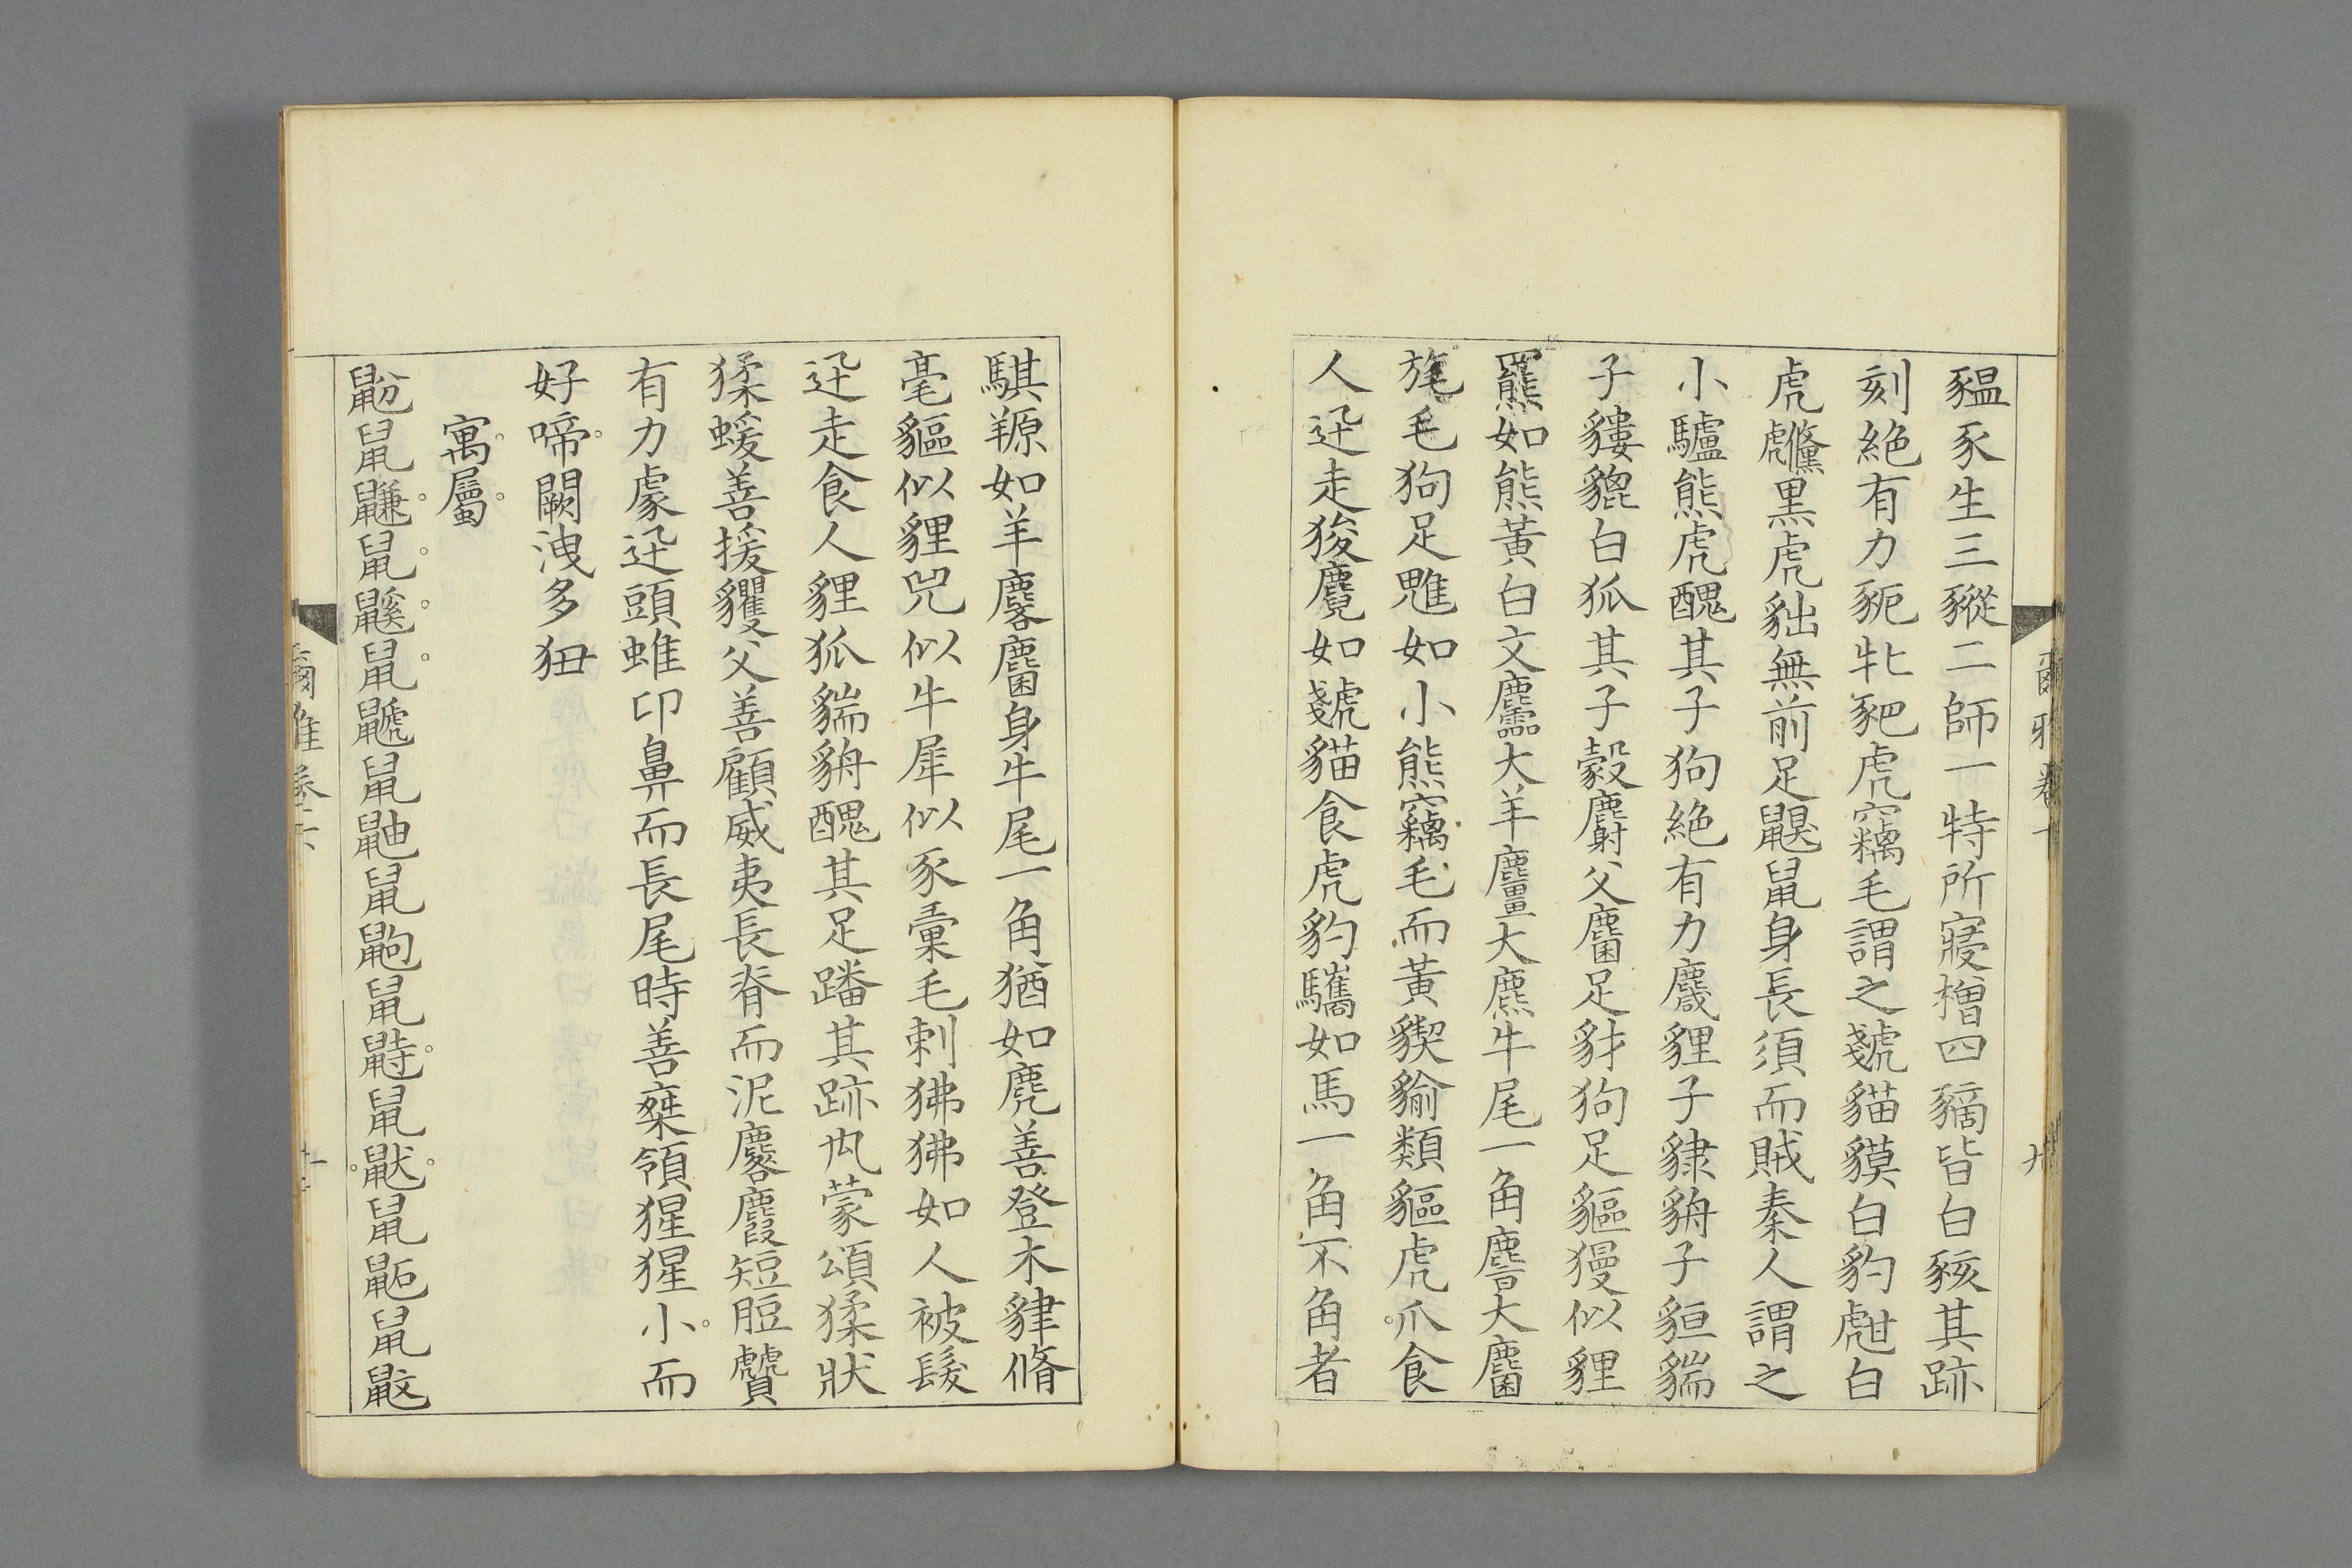 豱豕生三豵二師一特所寢橧四豴皆白豥其跡
刻絕有力豟牝豝虎竊毛謂之虦貓貘白豹甝白
虎虪黒虎貀無前足鼳鼠身長須而賊秦人謂之
小驢熊虎醜其子狗絕有力麙貍子貄貈子貆貒
子貗貔白狐其子豰麝父麕足豺狗足貙獌似貍
羆如熊黃白文麢大羊麠大麃牛尾一角麂大麕
旄毛狗足魋如小熊竊毛而黃䝟貐類貙虎爪食
人迅走狻麑如虦貓食虎豹驨如馬一角不角者
騏羱如羊麐麕身牛尾一角猶如麂善登木貄脩
毫貙似貍兕似牛犀似豕彙毛刺狒狒如人被髮
迅走食人貍狐貒貈醜其足蹯其跡厹蒙頌猱狀
猱蝯善援貜父善顧威夷長脊而泥麔麚短脰贙
有力豦迅頭蜼卬鼻而長尾時善椉領猩猩小而
好啼闕洩多狃
寓屬
鼢鼠鼸鼠鼷鼠鼶鼠鼬鼠鼩鼠鼭鼠鼣鼠鼫鼠鼤